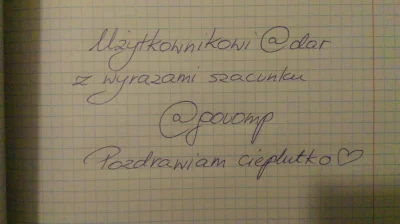 Użytkownikowi @dar
z wyrazami szacunku
@povomp
Pozdrawiam cieplutko♡